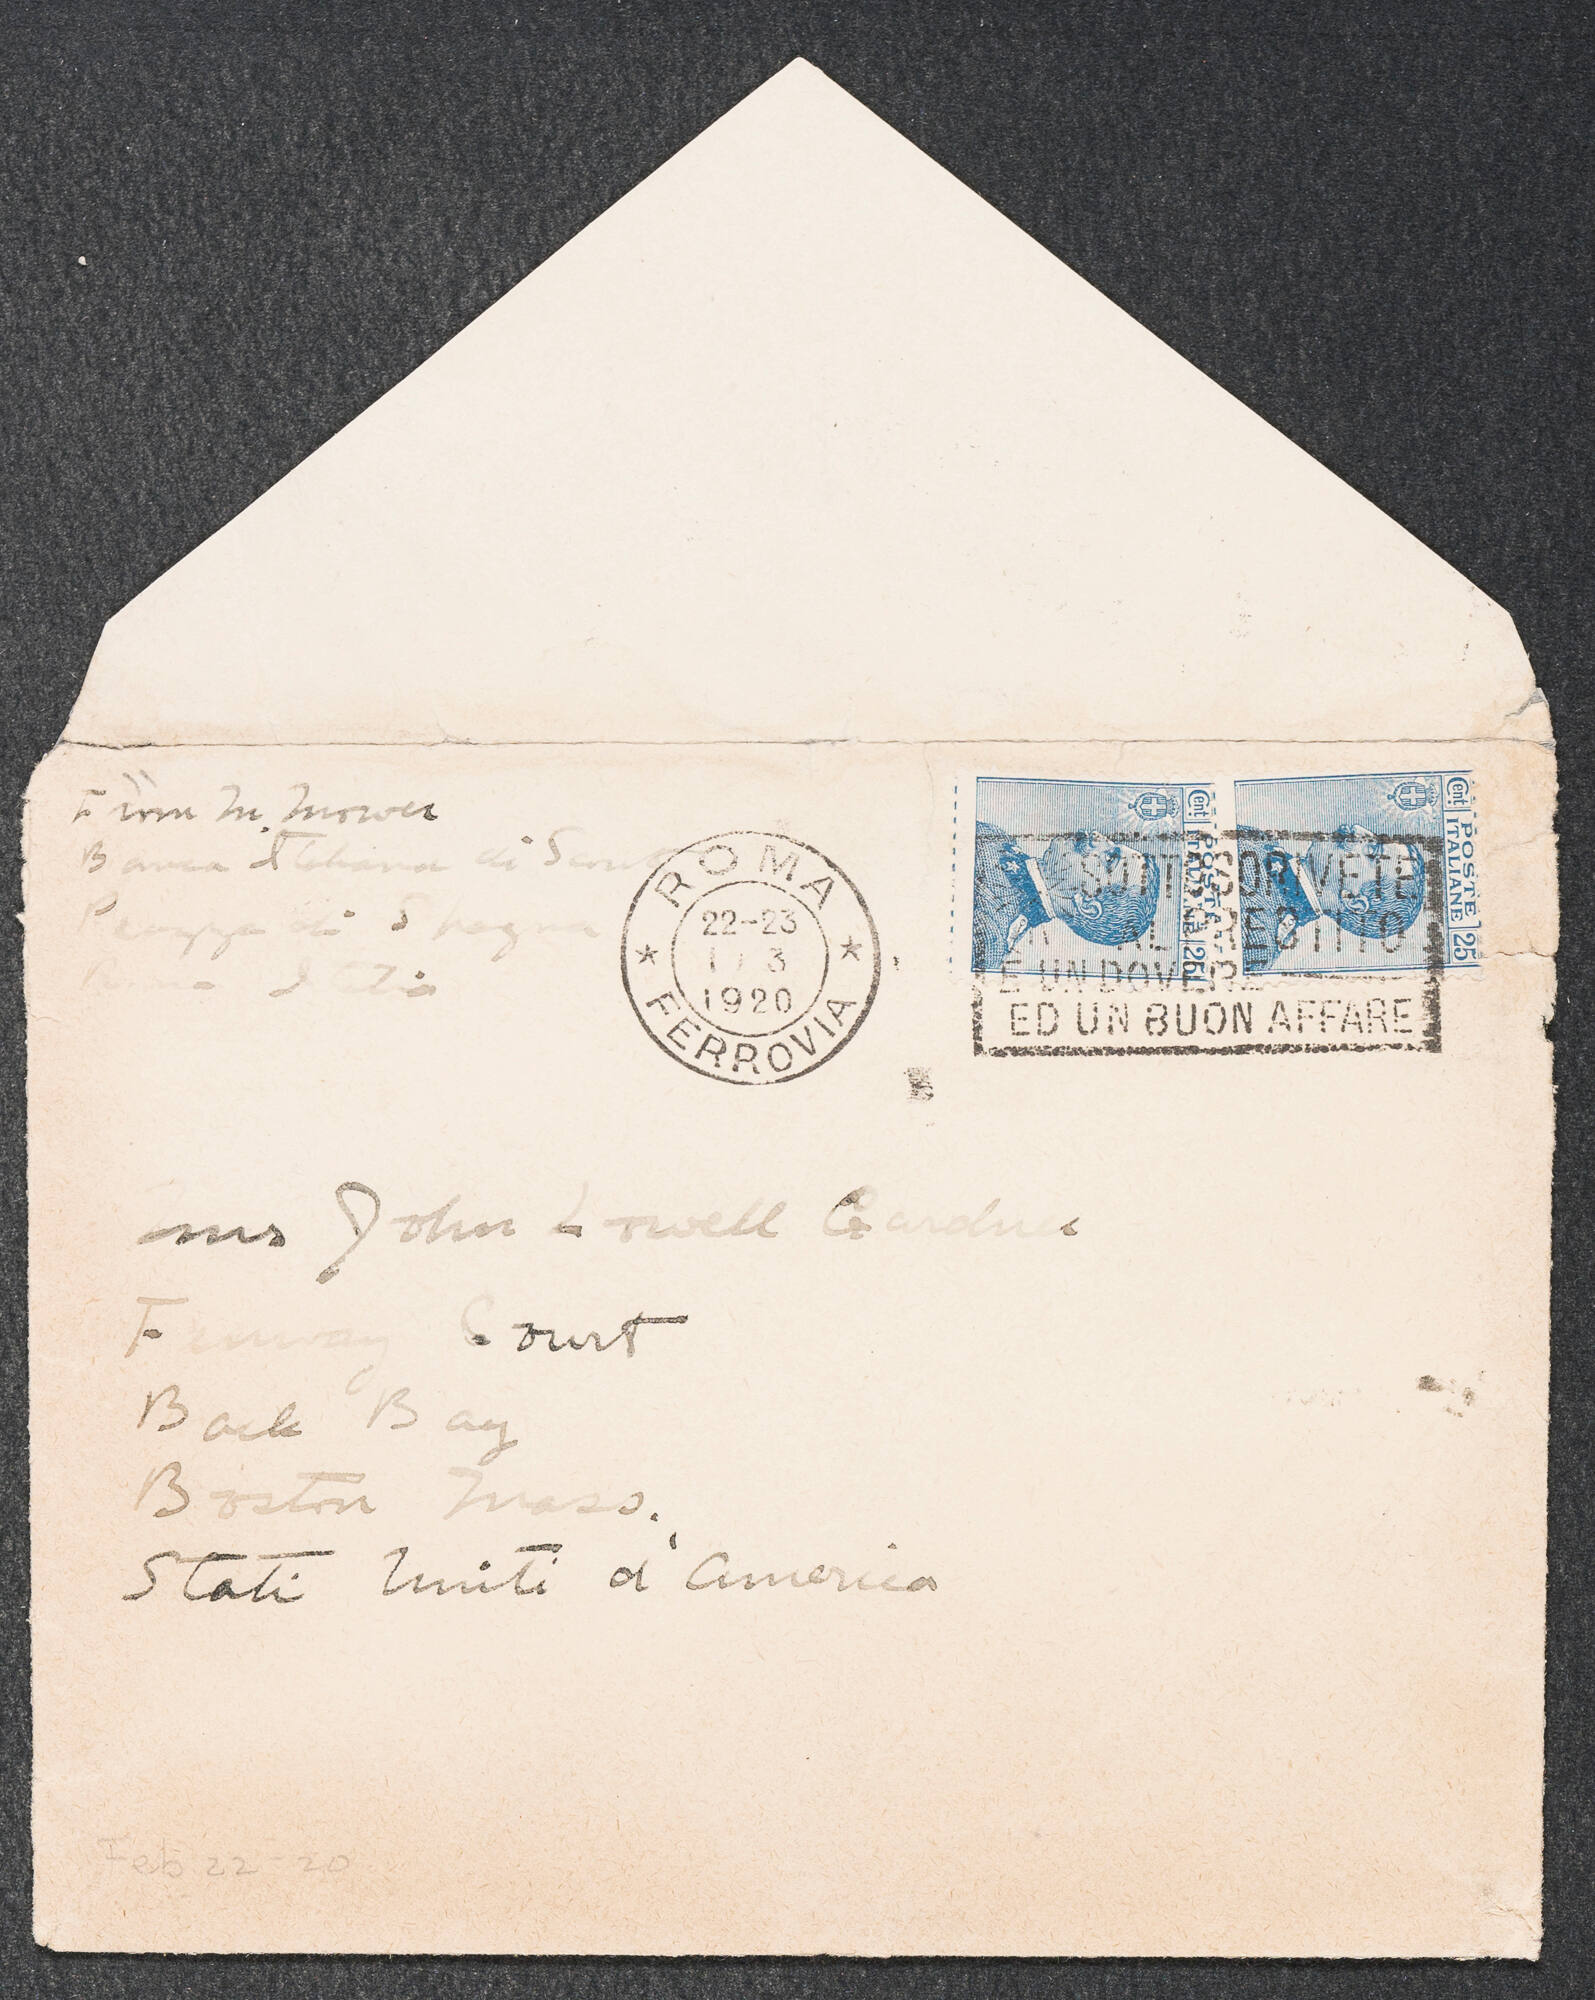 From M. Mower
Banca Italiana di Sconto
Piazza di Spagna
Roma Italia
ROMA
22-23
3
1920
FERROVIA
SCRIVETE
AL
E UN DOVERE
ED UN BUON AFFARE
Cent
POSTE
ITALIANE
25
Cent
POSTE
ITALIANE
25
Mrs John Lowell Gardner
Fenway Court
Back Bay
Boston Mass.
Stati Uniti d'America
Feb 22-20